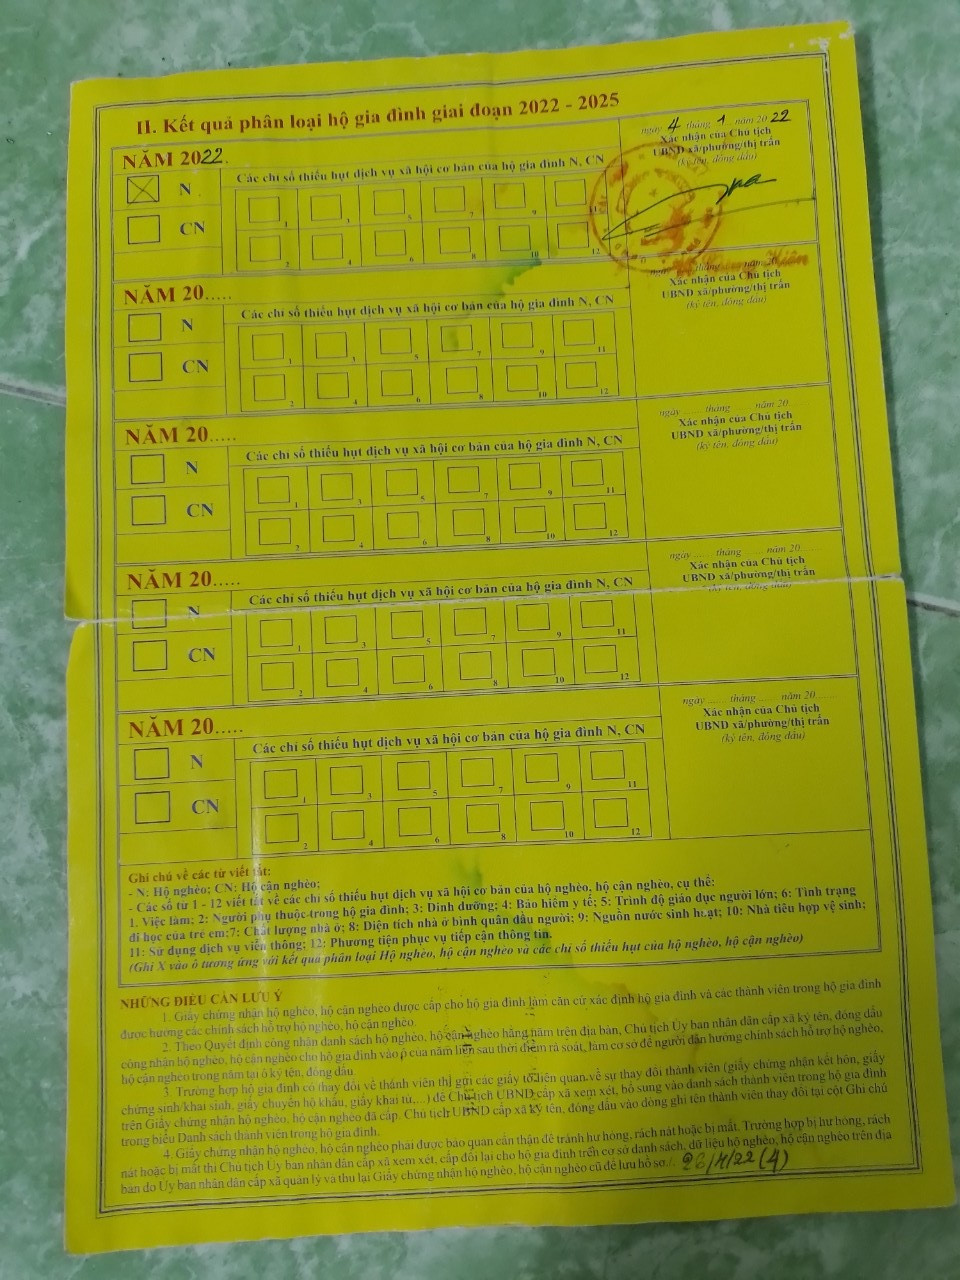 II. Kết quả phân loại hộ gia đình giai đoạn 2022 - 2025
NĂM 2022.
N
CN
Các chỉ số thiếu hụt dịch vụ xã hội cơ bản của hộ gia đình N, CN
1 3 5 7 9 11
2 4 6 8 10 12
ngày 4 tháng 1 năm 2022
Xác nhận của Chủ tịch
UBND xã/phường/thị trấn
(ký tên, đóng dấu)
NĂM 20.....
N
CN
Các chỉ số thiếu hụt dịch vụ xã hội cơ bản của hộ gia đình N, CN
1 3 5 7 9 11
2 4 6 8 10 12
ngày tháng năm 20
Xác nhận của Chủ tịch
UBND xã/phường/thị trấn
(ký tên, đóng dấu)
NĂM 20.....
N
CN
Các chỉ số thiếu hụt dịch vụ xã hội cơ bản của hộ gia đình N, CN
1 3 5 7 9 11
2 4 6 8 10 12
ngày ...... tháng ...... năm 20......
Xác nhận của Chủ tịch
UBND xã/phường/thị trấn
(ký tên, đóng dấu)
NĂM 20.....
N
CN
Các chỉ số thiếu hụt dịch vụ xã hội cơ bản của hộ gia đình N, CN
1 3 5 7 9 11
2 4 6 8 10 12
ngày ...... tháng ...... năm 20......
Xác nhận của Chủ tịch
UBND xã/phường/thị trấn
(ký tên, đóng dấu)
NĂM 20.....
N
CN
Các chỉ số thiếu hụt dịch vụ xã hội cơ bản của hộ gia đình N, CN
1 3 5 7 9 11
2 4 6 8 10 12
ngày ...... tháng ...... năm 20......
Xác nhận của Chủ tịch
UBND xã/phường/thị trấn
(ký tên, đóng dấu)
Ghi chú về các từ viết tắt:
- N: Hộ nghèo; CN: Hộ cận nghèo;
- Các số từ 1 - 12 viết tắt về các chỉ số thiếu hụt dịch vụ xã hội cơ bản của hộ nghèo, hộ cận nghèo, cụ thể:
1. Việc làm; 2: Người phụ thuộc trong hộ gia đình; 3: Dinh dưỡng; 4: Bảo hiểm y tế; 5: Trình độ giáo dục người lớn; 6: Tình trạng
đi học của trẻ em;7: Chất lượng nhà ở; 8: Diện tích nhà ở bình quân đầu người; 9: Nguồn nước sinh hoạt; 10: Nhà tiêu hợp vệ sinh;
11: Sử dụng dịch vụ viễn thông; 12: Phương tiện phục vụ tiếp cận thông tin.
(Ghi X vào ô tương ứng với kết quả phân loại Hộ nghèo, hộ cận nghèo và các chỉ số thiếu hụt của hộ nghèo, hộ cận nghèo)
NHỮNG ĐIỀU CẦN LƯU Ý
1. Giấy chứng nhận hộ nghèo, hộ cận nghèo được cấp cho hộ gia đình làm căn cứ xác định hộ gia đình và các thành viên trong hộ gia đình
được hưởng các chính sách hỗ trợ hộ nghèo, hộ cận nghèo.
2. Theo Quyết định công nhận danh sách hộ nghèo, hộ cận nghèo hằng năm trên địa bàn, Chủ tịch Ủy ban nhân dân cấp xã ký tên, đóng dấu
công nhận hộ nghèo, hộ cận nghèo cho hộ gia đình vào ô của năm liền sau thời điểm rà soát, làm cơ sở để người dân hưởng chính sách hỗ trợ hộ nghèo,
hộ cận nghèo trong năm tại ô ký tên, đóng dấu
3. Trường hợp hộ gia đình có thay đổi về thành viên thì gửi các giấy tờ liên quan về sự thay đổi thành viên (giấy chứng nhận kết hôn, giấy
chứng sinh/khai sinh, giấy chuyển hộ khẩu, giấy khai tử,...) để Chủ tịch UBND cấp xã xem xét, bổ sung vào danh sách thành viên trong hộ gia đình
trên Giấy chứng nhận hộ nghèo, hộ cận nghèo đã cấp. Chủ tịch UBND cấp xã ký tên, đóng dấu vào dòng ghi tên thành viên thay đổi tại cột Ghi chú
trong biểu Danh sách thành viên trong hộ gia đình.
4. Giấy chứng nhận hộ nghèo, hộ cận nghèo phải được bảo quản cẩn thận để tránh hư hỏng, rách nát hoặc bị mất. Trường hợp bị hư hỏng, rách
nát hoặc bị mất thì Chủ tịch Ủy ban nhân dân cấp xã xem xét, cấp đổi lại cho hộ gia đình trên cơ sở danh sách, dữ liệu hộ nghèo, hộ cận nghèo trên địa
bàn do Ủy ban nhân dân cấp xã quản lý và thu lại Giấy chứng nhận hộ nghèo, hộ cận nghèo cũ để lưu hồ sơ./.